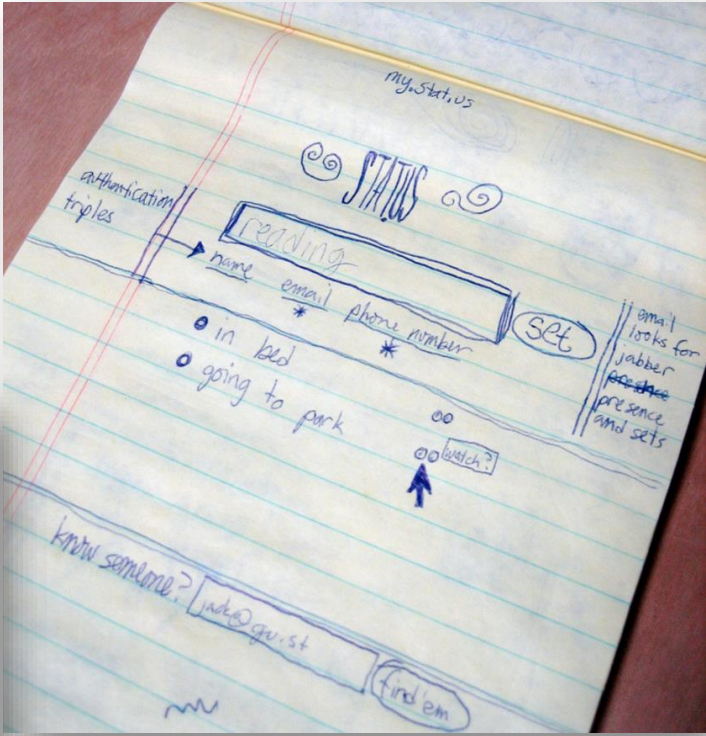 my.stat.us
STAT.US
authentication
triples
reading
name
email
phone number
* *
set
email
looks for
jabber
presence
presence
and sets
in bed
going to park
watch?
know someone?
jack@gu.st
find'em